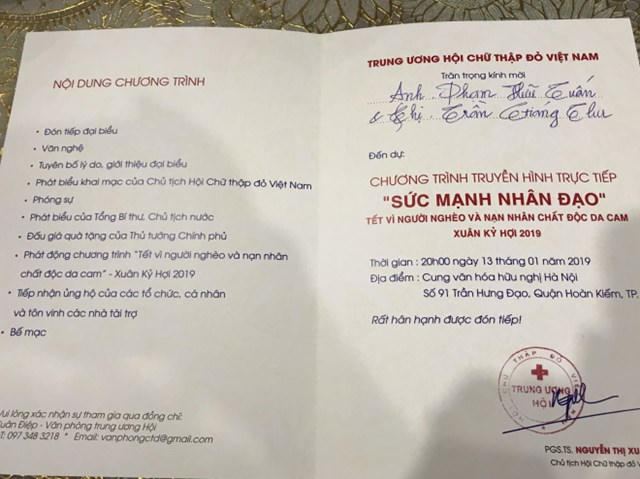 NỘI DUNG CHƯƠNG TRÌNH
• Đón tiếp đại biểu
• Văn nghệ
• Tuyên bố lý do, giới thiệu đại biểu
• Phát biểu khai mạc của Chủ tịch Hội Chữ thập đỏ Việt Nam
• Phóng sự
• Phát biểu của Tổng Bí thư, Chủ tịch nước
• Đấu giá quà tặng của Thủ tướng Chính phủ
• Phát động chương trình "Tết vì người nghèo và nạn nhân
chất độc da cam" - Xuân Kỷ Hợi 2019
• Tiếp nhận ủng hộ của các tổ chức, cá nhân
và tôn vinh các nhà tài trợ
• Bế mạc
Vui lòng xác nhận sự tham gia qua đồng chí:
Xuân Điệp - Văn phòng trung ương Hội
T: 097 348 3218 * Email: vanphongctd@gmail.com
TRUNG ƯƠNG HỘI CHỮ THẬP ĐỎ VIỆT NAM
Trân trọng kính mời
Anh. Phạm Hữu Tuấn
& Chị. Trần Giáng Thu
Đến dự:
CHƯƠNG TRÌNH TRUYỀN HÌNH TRỰC TIẾP
"SỨC MẠNH NHÂN ĐẠO"
TẾT VÌ NGƯỜI NGHÈO VÀ NẠN NHÂN CHẤT ĐỘC DA CAM
XUÂN KỶ HỢI 2019
Thời gian : 20h00 ngày 13 tháng 01 năm 2019
Địa điểm : Cung văn hóa hữu nghị Hà Nội
Số 91 Trần Hưng Đạo, Quận Hoàn Kiếm, TP.
Rất hân hạnh được đón tiếp!
HỘI CHỮ THẬP ĐỎ VIỆT NAM
TRUNG ƯƠNG
HỘI
PGS.TS. NGUYỄN THỊ XUÂ
Chủ tịch Hội Chữ thập đỏ V